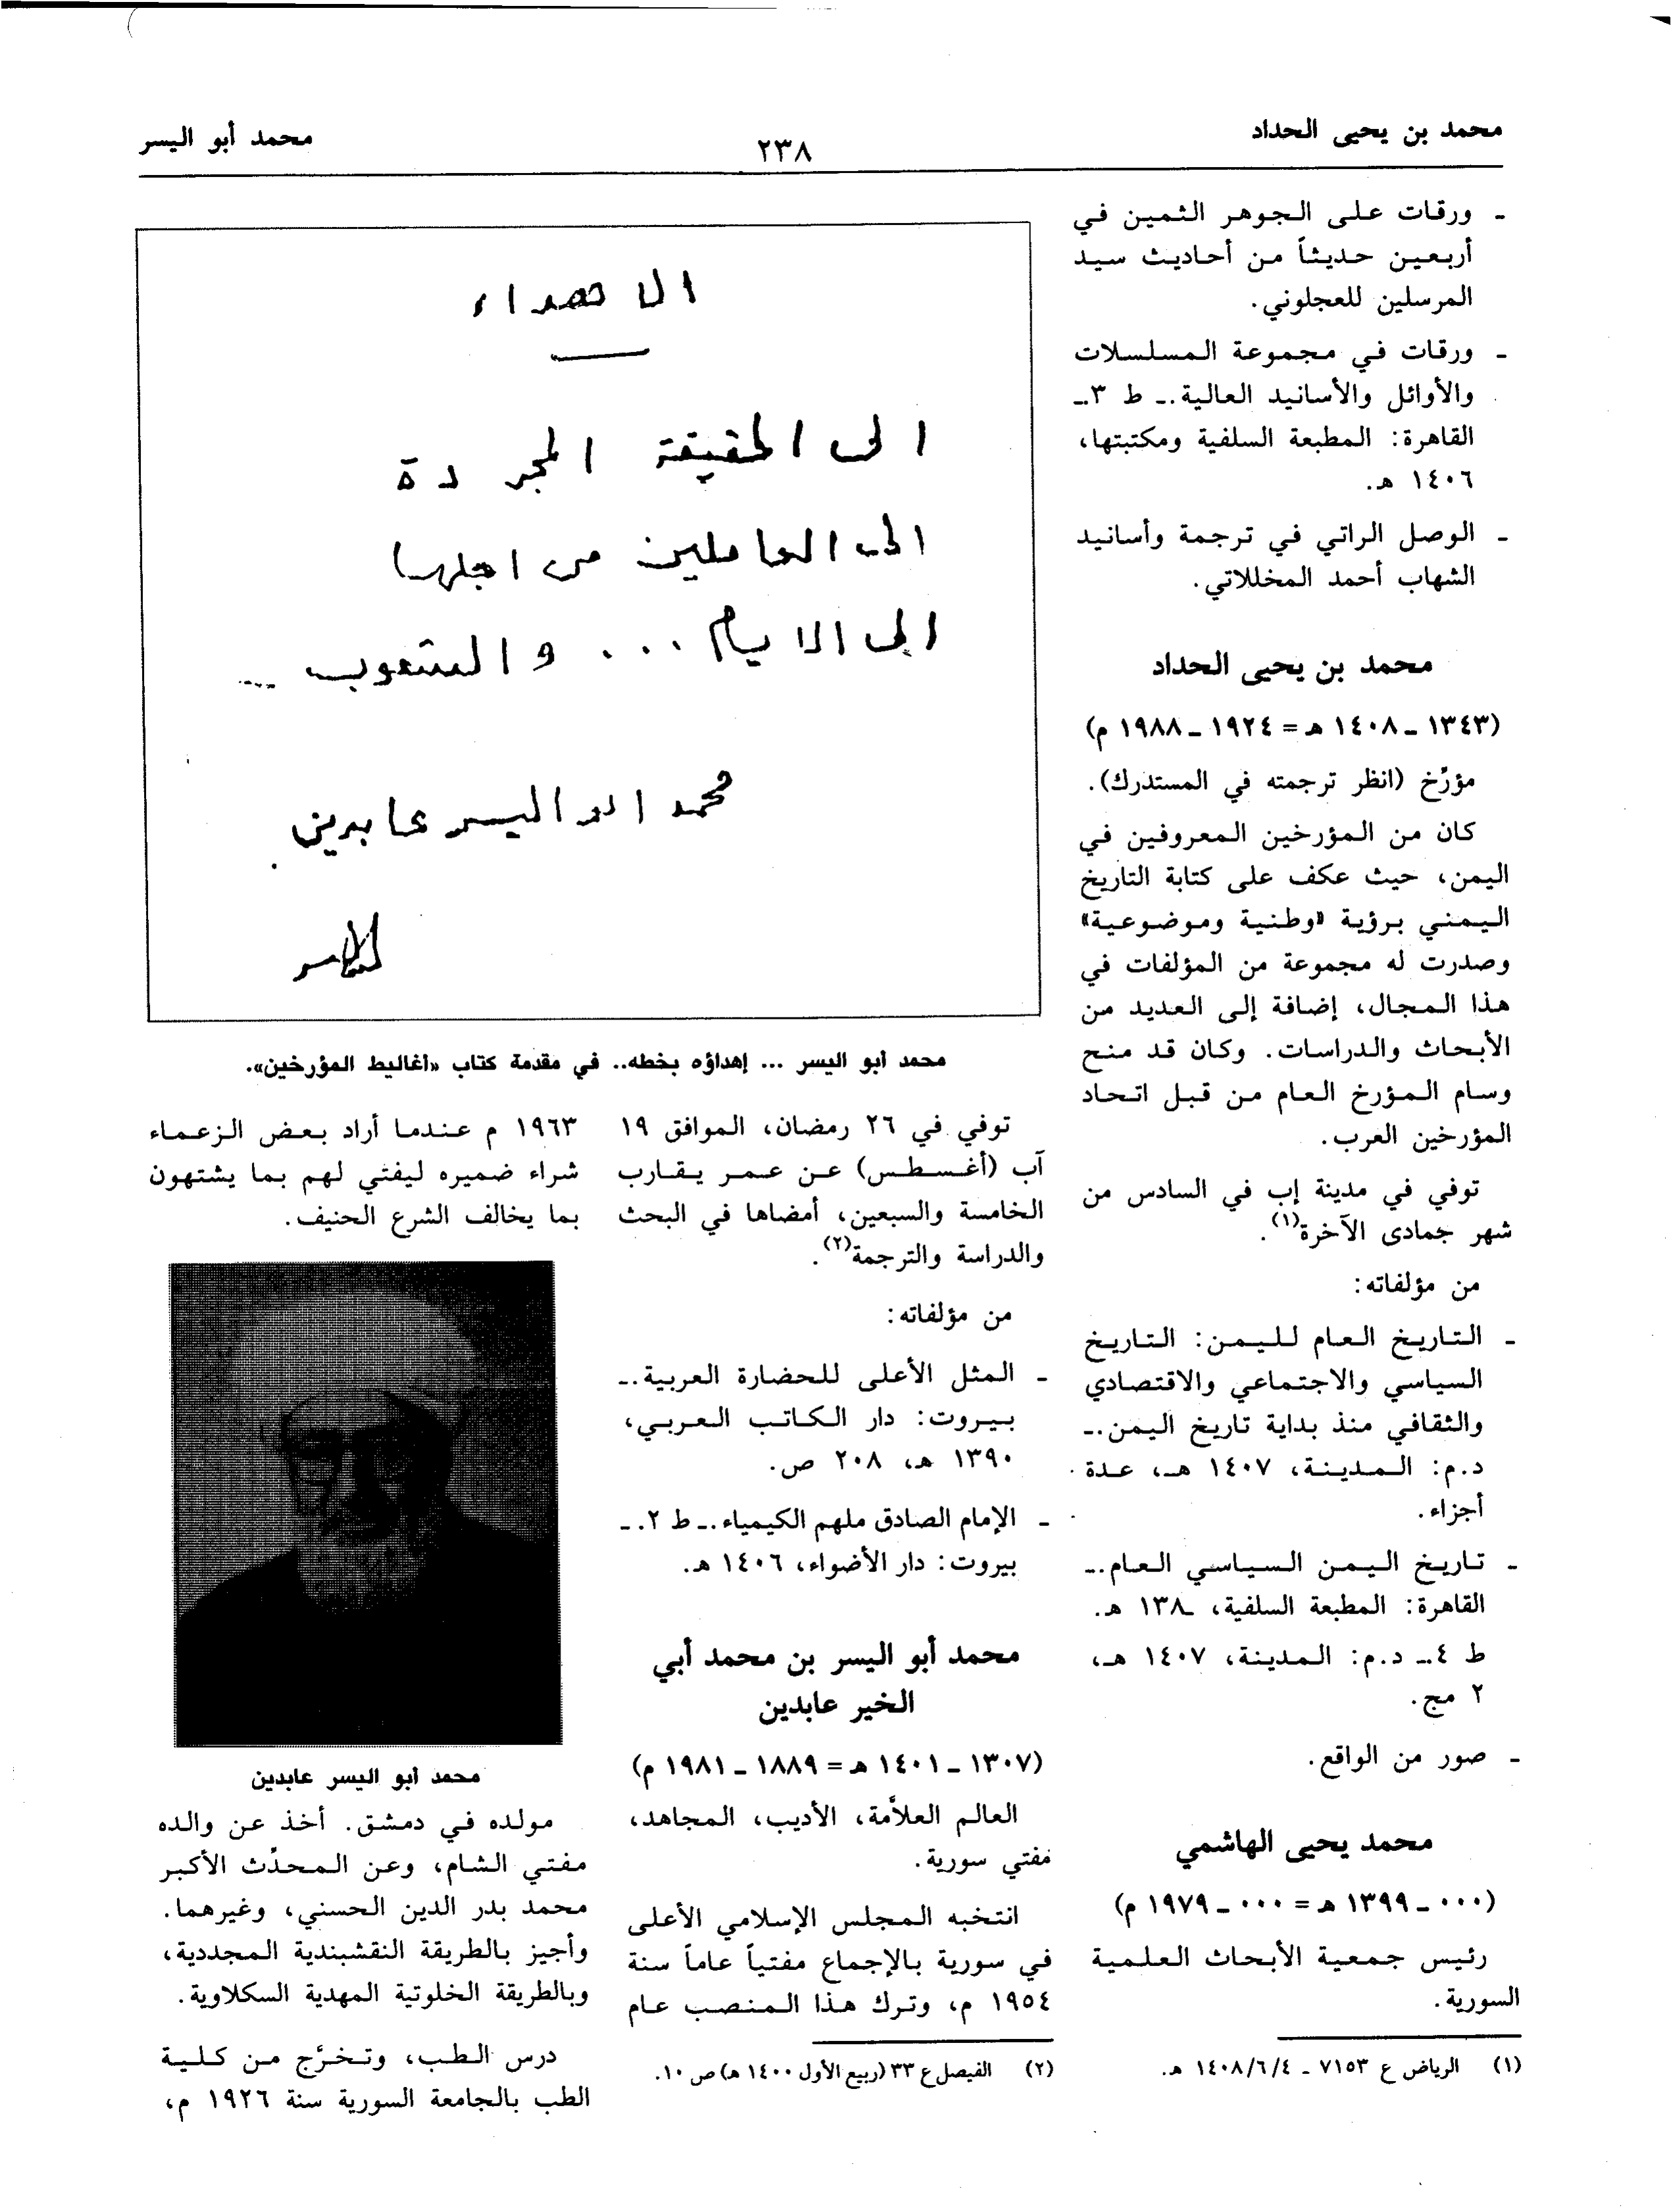 محمد بن يحيى الحداد
٢٣٨
محمد أبو اليسر
ـ ورقات على الجوهر الثمين في
أربعين حديثاً من أحاديث سيد
المرسلين للعجلوني.
ـ ورقات في مجموعة المسلسلات
والأوائل والأسانيد العالية.ـ ط ٣.ـ
القاهرة: المطبعة السلفية ومكتبتها،
١٤٠٦ هـ.
ـ الوصل الراتي في ترجمة وأسانيد
الشهاب أحمد المخللاتي.
محمد بن يحيى الحداد
(١٣٤٣ ـ ١٤٠٨ هـ = ١٩٢٤ ـ ١٩٨٨ م)
مؤرِّخ (انظر ترجمته في المستدرك).
كان من المؤرخين المعروفين في
اليمن، حيث عكف على كتابة التاريخ
اليمني برؤية «وطنية وموضوعية»
وصدرت له مجموعة من المؤلفات في
هذا المجال، إضافة إلى العديد من
الأبحاث والدراسات. وكان قد منح
وسام المؤرخ العام من قبل اتحاد
المؤرخين العرب.
توفي في مدينة إب في السادس من
شهر جمادى الآخرة(١).
من مؤلفاته:
ـ التاريخ العام لليمن: التاريخ
السياسي والاجتماعي والاقتصادي
والثقافي منذ بداية تاريخ اليمن.ـ
د.م: المدينة، ١٤٠٧ هـ، عدة
أجزاء.
ـ تاريخ اليمن السياسي العام.ـ
القاهرة: المطبعة السلفية، ـ١٣٨ هـ.
ط ٤ـ د.م: المدينة، ١٤٠٧ هـ،
٢ مج.
ـ صور من الواقع.
محمد يحيى الهاشمي
(٠٠٠ ـ ١٣٩٩ هـ = ٠٠٠ ـ ١٩٧٩ م)
رئيس جمعية الأبحاث العلمية
السورية.
(١) الرياض ع ٧١٥٣ ـ ١٤٠٨/٦/٤ هـ.
الاهداء
الى الحقيقة المجردة
الى العاملين من اجلها
الى الايام ... والشعوب ...
محمد ابو اليسر عابدين
محمد أبو اليسر ... إهداؤه بخطه.. في مقدمة كتاب «أغاليط المؤرخين».
توفي في ٢٦ رمضان، الموافق ١٩
آب (أغسطس) عن عمر يقارب
الخامسة والسبعين، أمضاها في البحث
والدراسة والترجمة(٢).
من مؤلفاته:
ـ المثل الأعلى للحضارة العربية.ـ
بيروت: دار الكاتب العربي،
١٣٩٠ هـ، ٢٠٨ ص.
ـ الإمام الصادق ملهم الكيمياء.ـ ط ٢.ـ
بيروت: دار الأضواء، ١٤٠٦ هـ.
محمد أبو اليسر بن محمد أبي
الخير عابدين
(١٣٠٧ ـ ١٤٠١ هـ = ١٨٨٩ ـ ١٩٨١ م)
العالم العلاَّمة، الأديب، المجاهد،
مفتي سورية.
انتخبه المجلس الإسلامي الأعلى
في سورية بالإجماع مفتياً عاماً سنة
١٩٥٤ م، وترك هذا المنصب عام
(٢) الفيصل ع ٣٣ (ربيع الأول ١٤٠٠ هـ) ص ١٠.
١٩٦٣ م عندما أراد بعض الزعماء
شراء ضميره ليفتي لهم بما يشتهون
بما يخالف الشرع الحنيف.
محمد أبو اليسر عابدين
مولده في دمشق. أخذ عن والده
مفتي الشام، وعن المحدِّث الأكبر
محمد بدر الدين الحسني، وغيرهما.
وأجيز بالطريقة النقشبندية المجددية،
وبالطريقة الخلوتية المهدية السكلاوية.
درس الطب، وتخرَّج من كلية
الطب بالجامعة السورية سنة ١٩٢٦ م،